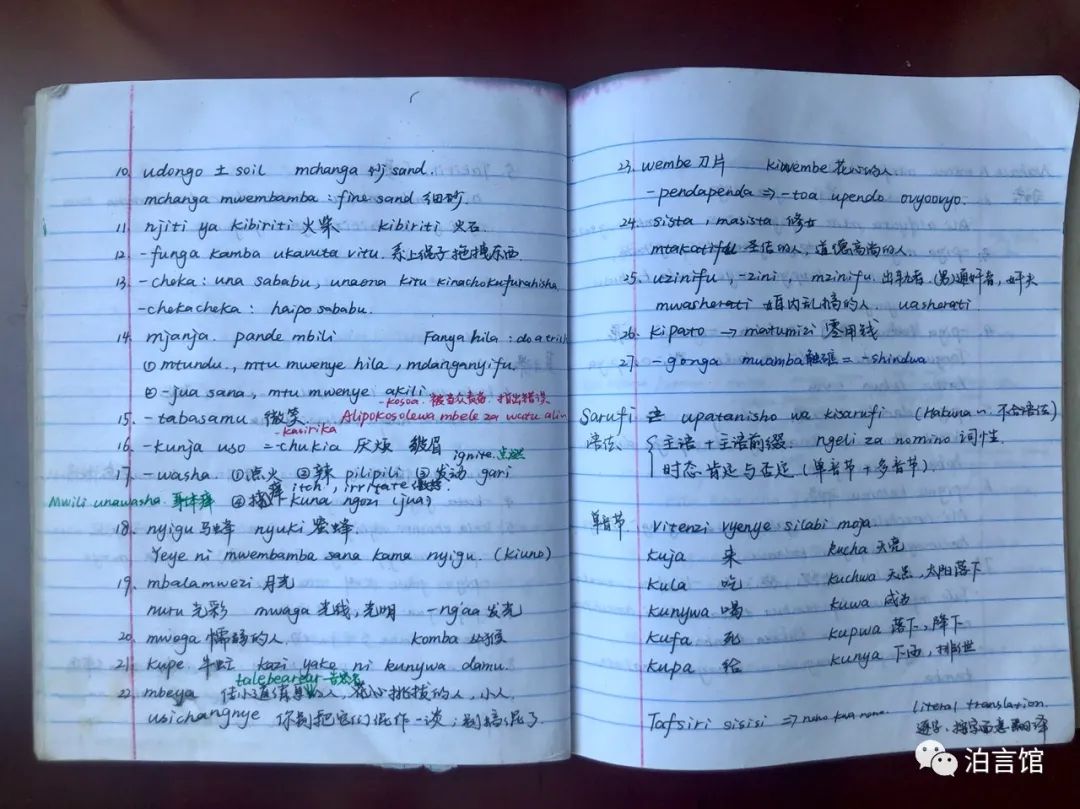 10. udongo 土 soil mchanga 沙 sand.
mchanga mwembamba : fine sand 细砂.
11. njiti ya kibiriti 火柴 kibiriti 火石
12. -funga kamba ukavuta vitu. 系上绳子拖拽东西
13. -cheka : una sababu, unaona kitu kinachokufurahisha
-chekacheka : haipo sababu.
14. mjanja. pande mbili Fanya hila : do a trick
① mtundu., mtu mwenye hila, mdanganyifu.
② -jua sana, mtu mwenye akili
-kosoa. 指出错误
15. -tabasamu 微笑 Alipokosolewa mbele za watu alin
-kasirika
16. -kunja uso =-chukia 厌烦 皱眉
ignite. 点燃
17. -washa. ①点火 ②辣 pilipili ③发动 gari
itch, irritate
Mwili unawasha. 身体痒 ④ kuna ngozi (jua)
18. nyigu 马蜂 nyuki 蜜蜂
Yeye ni mwembamba sana kama nyigu. (kiuno)
19. mbalamwezi 月光
nuru 光彩 mwaga 光线, 光明 -ng'aa 发光
20. mwoga 懦弱的人. komba
21. kupe 牛虻 kazi yake ni kunywa damu.
talebearer
22. mbeya 的人, 挑拨的人, 小人.
usichangnye 你别把它们混作一谈 ; 别搞混了
23. wembe 刀片 kiwembe 花心的人
-pendapenda => -toa upendo ovyoovyo.
24. sista, masista 修女
mtakatifu 圣洁的人, 道德高尚的人
25. uzinifu, -zini, mzinifu. 出轨者, (男)通奸者, 奸夫
mwasherati 的人. uasherati.
26. kipato → matumizi 零用钱
27. -gonga muamba 触礁 = -shindwa
Sarufi upatanisho wa kisarufi (Hakuna ~. 不合语法)
语法 主语 + 主语前缀. ngeli za nomino 词性.
时态 肯定与否定 (单音节 + 多音节).
单音节 vitenzi vyenye silabi moja.
kuja 来 kucha 天亮
kula 吃 kuchwa 天黑, 太阳落下
kunywa 喝 kuwa 成为
kufa 死 kupwa 落下, 降下
kupa 给 kunya 下雨, 排泄
Tafsiri sisisi => neno kwa neno. literal translation.
逐字、按字面意思翻译
泊言馆